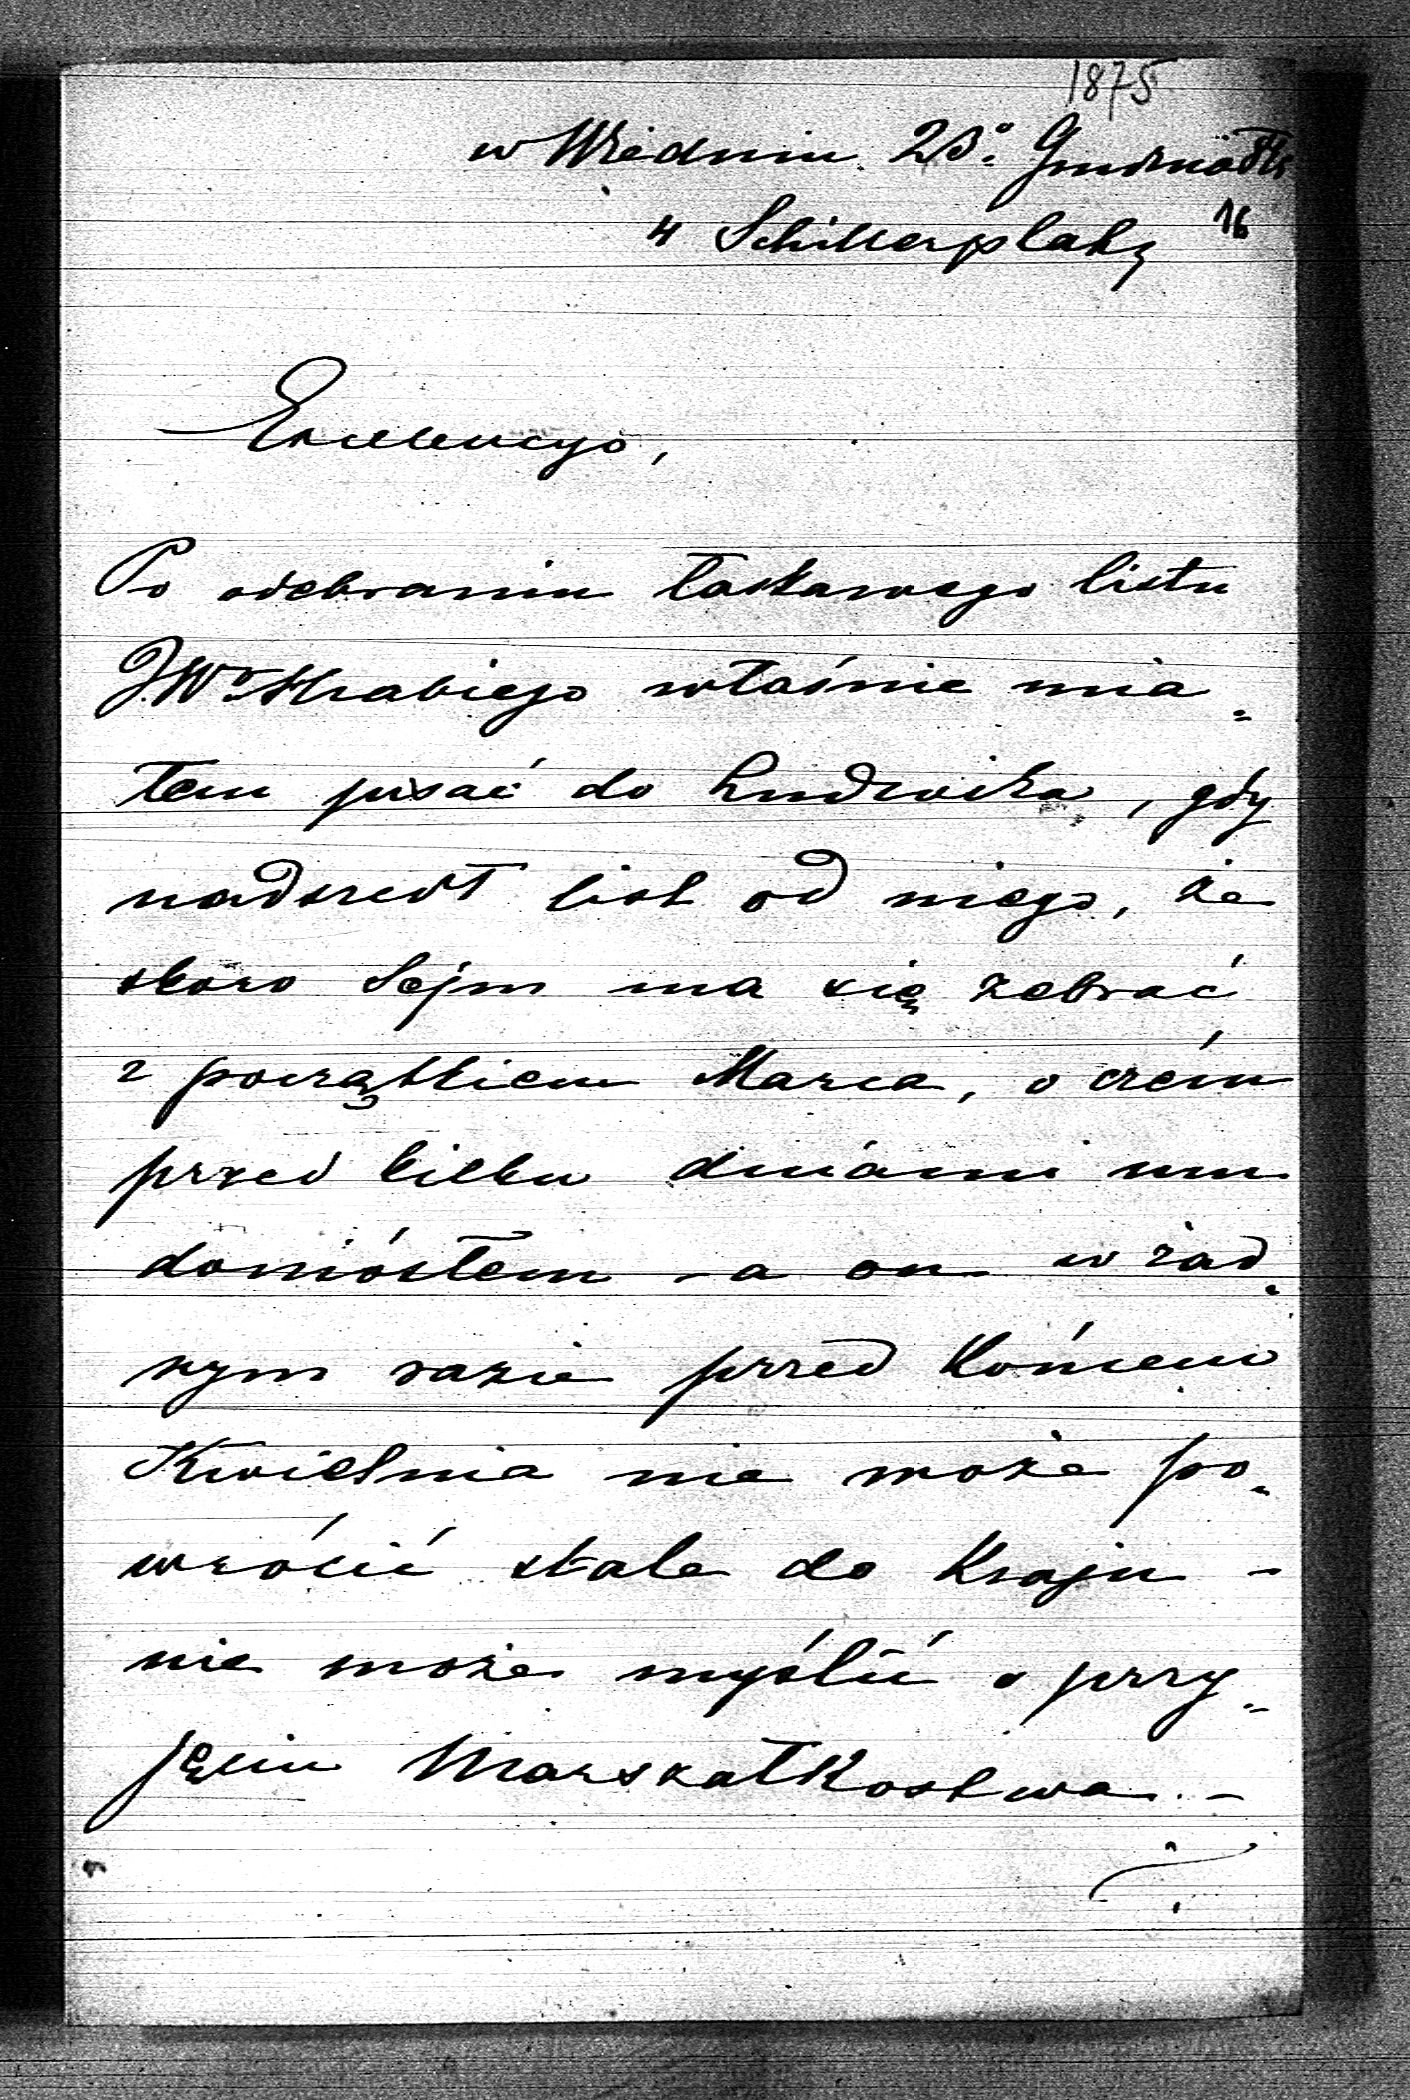 1875
w Wiedniu 23° Grudnia 75
16
4 Schillerplatz
Excelencyo,
Po odebraniu łaskawego listu
JWo Hrabiego właśnie mia=
łem pisać do Ludwika, gdy
nadszedł list od niego, że
skoro Sejm ma się zebrać
z początkiem Marca, o czém
przed kilku dniami mu
doniósłem - a on w żad=
nym razie przed Końcem
Kwietnia nie może po=
wrócić stale do Kraju -
nie może myślić o przy=
jęciu Marszałkostwa. -